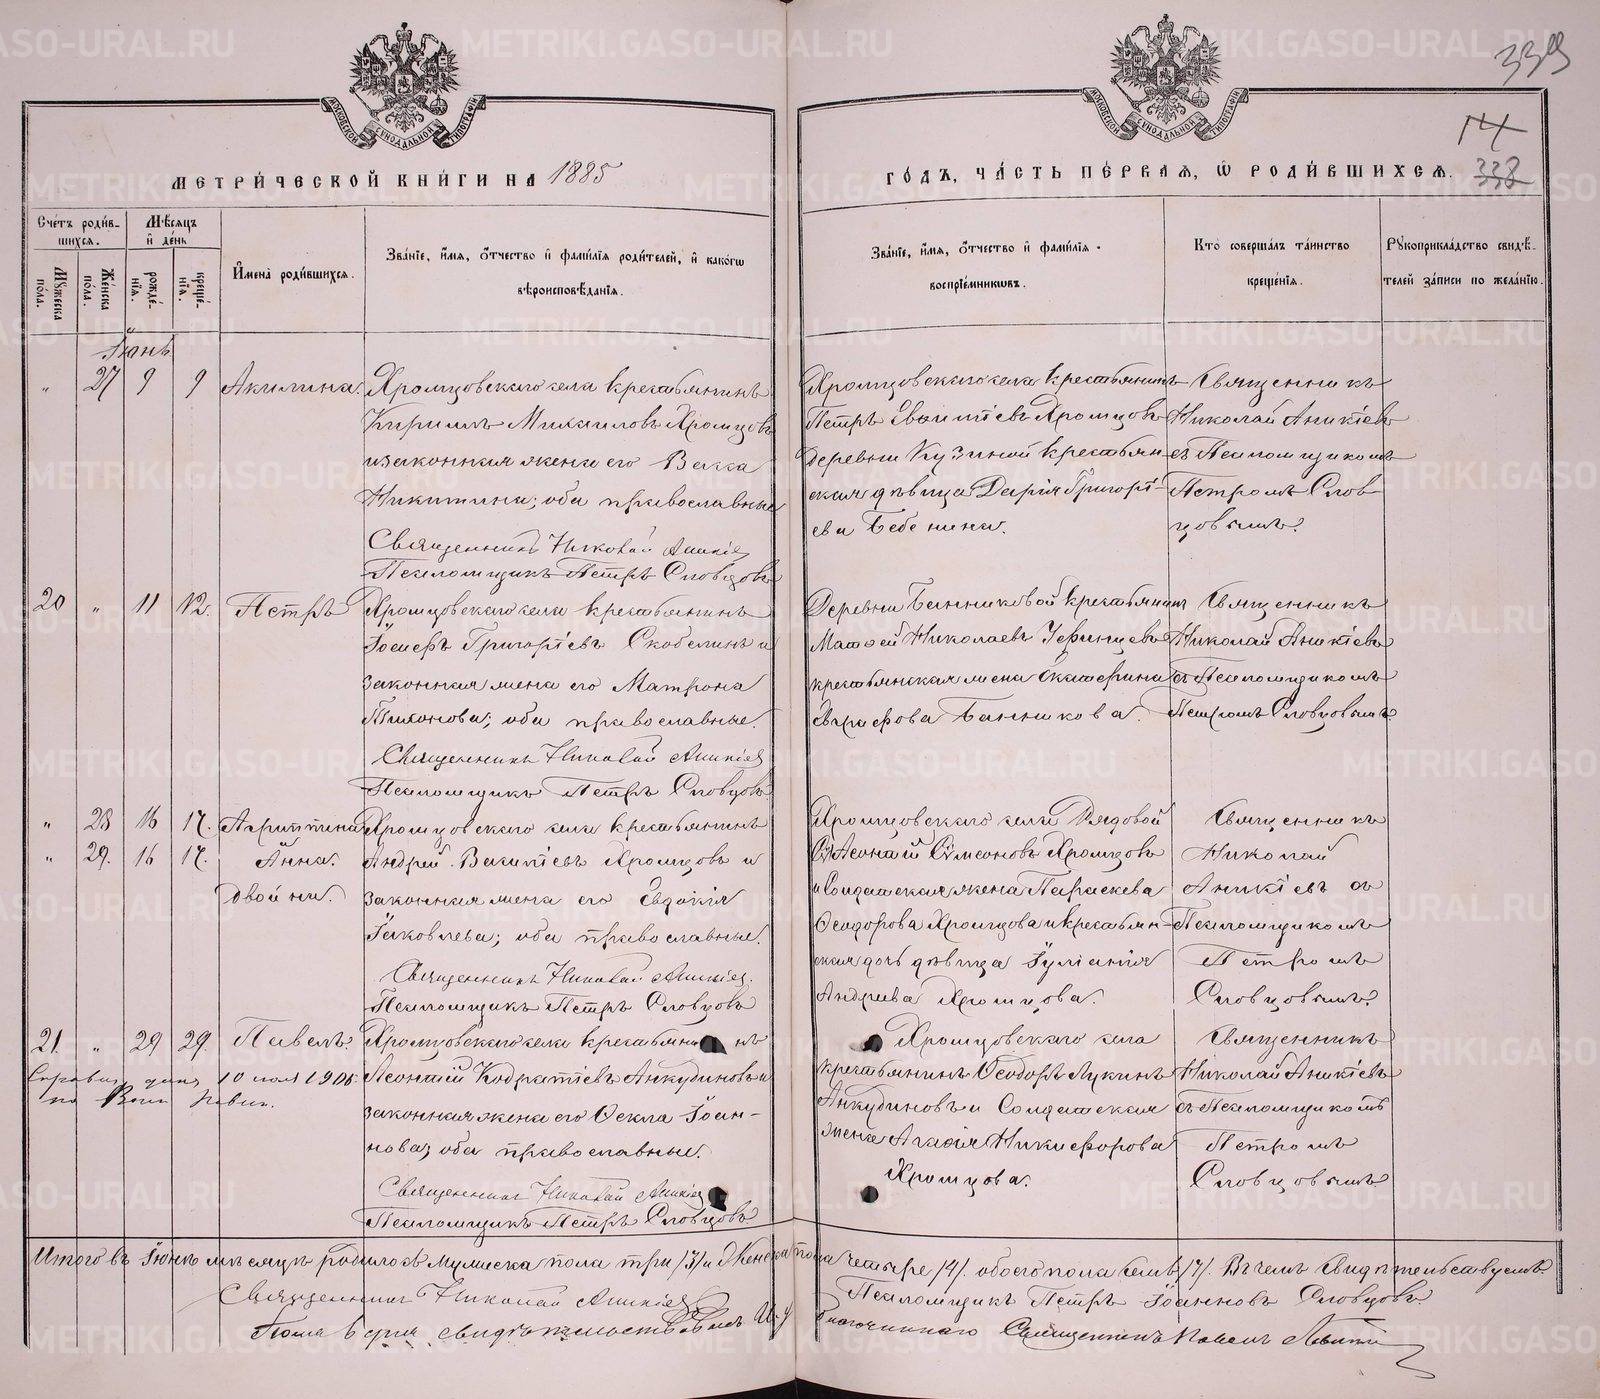 МЕТРИЧЕСКОЙ КНИГИ НА 1885
ГОДЪ, ЧАСТЬ ПЕРВАЯ, Ѡ РОДИВШИХСЯ.
339
14
338
МОСКОВСКОЙ СѴНОДАЛЬНОЙ ТИПОГРАФІИ
МОСКОВСКОЙ СѴНОДАЛЬНОЙ ТИПОГРАФІИ
Счетъ родив-
шихся.
Мѣсяцъ
и день
Мужеска пола.
Женска пола.
рожде-
нія.
креще-
нія.
Имена родившихся.
Званіе, имя, отчество и фамилія родителей, и какогѡ
вѣроисповѣданія.
Званіе, имя, отчество и фамилія
воспріемникѡвъ.
Кто совершалъ таинство
крещенія.
Рукоприкладство свидѣ-
телей записи по желанію.
Іюнь
„ 27 9 9 Акилина.
Хромцовскаго села крестьянинъ
Кириллъ Михаиловъ Хромцовъ
и законная жена его Васса
Никитина; оба православные
Священникъ Николай Аникіев
Псаломщикъ Петръ Словцовъ
Хромцовскаго села крестьянинъ
Петръ Хромцовъ
деревни Кузиной крестьян-
ская дѣвица Дарія Григорі-
ева Бебенина.
Священникъ
Николай Аникіевъ
съ Псаломщикомъ
Петромъ Слов
цовымъ.
20 „ 11 12. Петръ
Хромцовскаго села крестьянинъ
Іосифъ Григоріевъ Скобелинъ и
законная жена его Матрона
Тихонова; оба православные.
Священникъ Николай Аникіев
Псаломщикъ Петръ Словцовъ
Деревни Банниковой крестьянинъ
Матѳей Николаевъ Уфинцевъ
крестьянская жена Екатерина
Банникова.
Священникъ
Николай Аникіевъ
съ Псаломщикомъ
Петромъ Словцовымъ
„ 28 16 17. Агриппина
„ 29. 16 17. Анна.
двойни.
Хромцовскаго села крестьянинъ
Андрей Хромцовъ и
законная жена его Евдокія
Іаковлева; оба православные.
Священникъ Николай Аникіев.
Псаломщикъ Петръ Словцовъ
Хромцовскаго села Рядовой
Леонтій Сѵмеоновъ Хромцовъ
и Солдатская жена Параскева
Ѳеодорова Хромцова и крестьян-
ская дочь дѣвица Іуліанія
Андреева Хромцова.
Священникъ
Николай
Аникіевъ съ
Псаломщикомъ
Петромъ
Словцовымъ.
21. „ 29 29. Павелъ.
10 1906.
Хромцовскаго села крестьянинъ
Леонтій Кодратіевъ Анкудиновъ и
законная жена его Ѳекла Іоан-
нова; оба православные.
Священникъ Николай Аникіев
Псаломщикъ Петръ Словцовъ
Хромцовскаго села
крестьянинъ Ѳеодоръ Лукинъ
Анкудиновъ и Солдатская
жена Агаѳія Никифорова
Хромцова.
Священникъ
Николай Аникіевъ
съ Псаломщикомъ
Петромъ
Словцовымъ
Итого въ Іюнѣ мѣсяцѣ родилось мужеска пола три /3/ и женска пола четыре /4/. обоего пола семь /7/. Въ чемъ свидѣтельствуемъ.
Священникъ Николай Аникіев
Псаломщикъ Петръ Іоанновъ Словцовъ.
Священникъ Павелъ